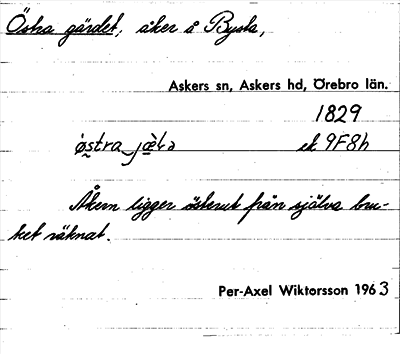 Östra gärdet, åker å Bysta,
Askers sn, Askers hd, Örebro län.
1829
östra jæ̀ɭa ek 9F8h
Åkern ligger österut från själva bru-
ket räknat.
Per-Axel Wiktorsson 1963